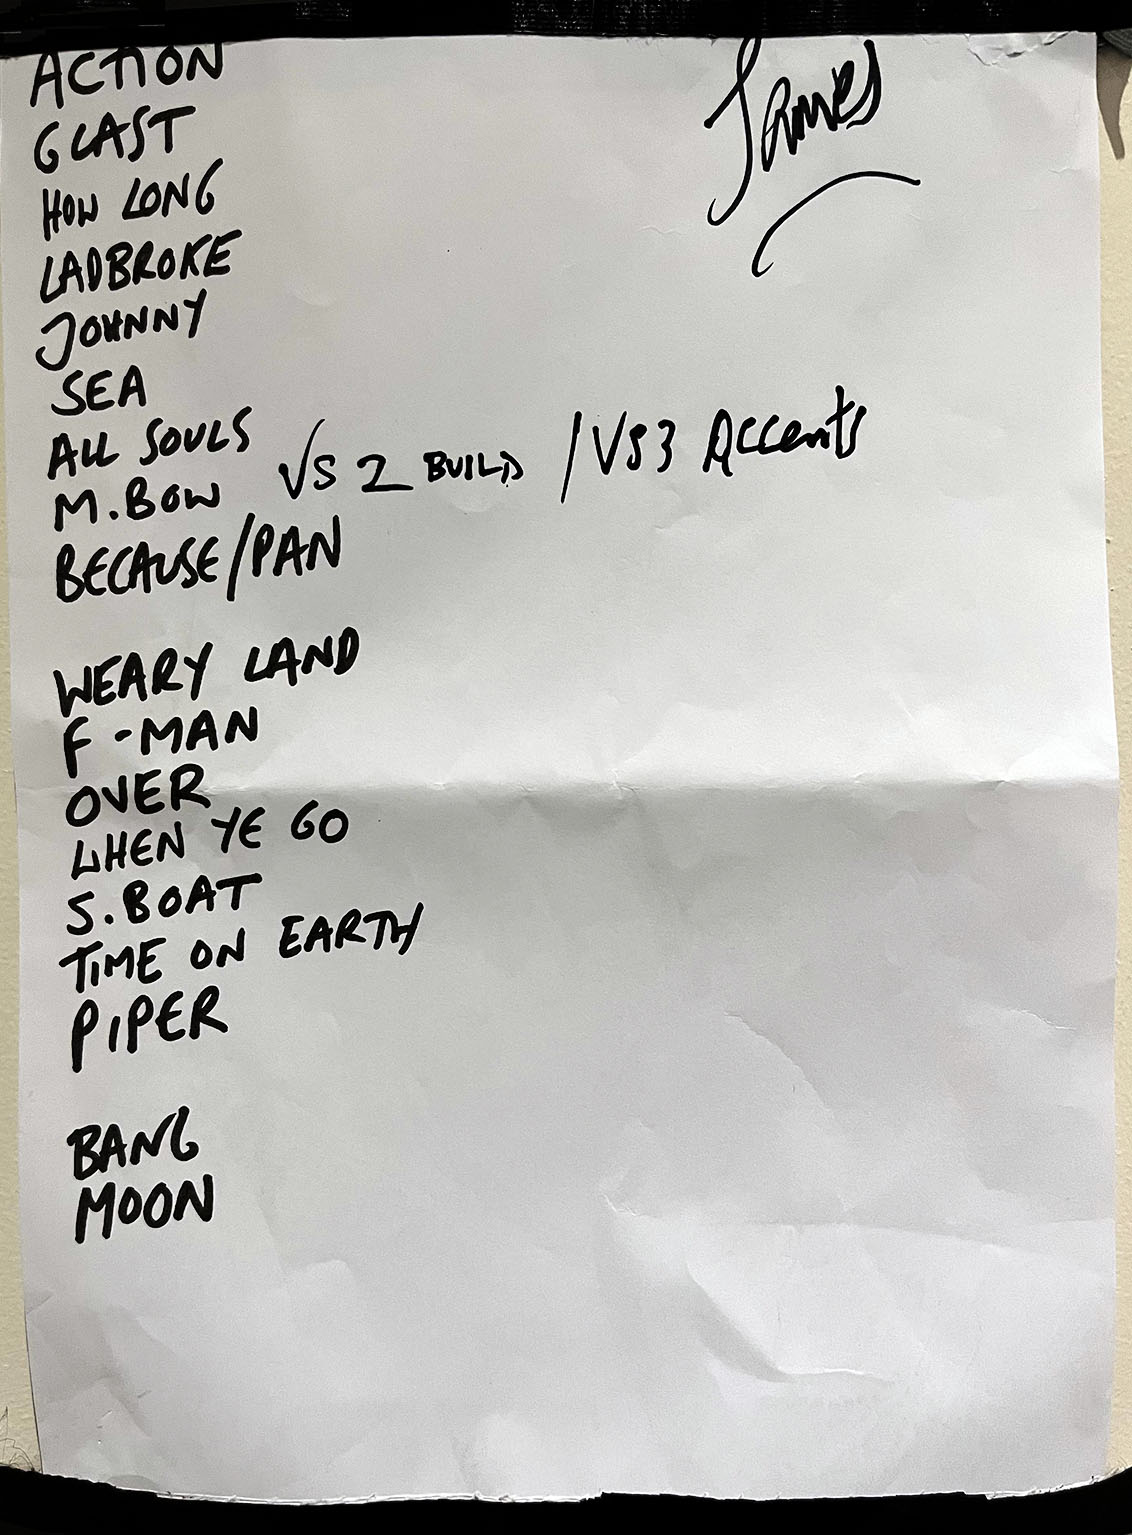 ACTION
James
GLAST
HOW LONG
LADBROKE
JOHNNY
SEA
ALL SOULS
M.BOW VS 2 BUILD / VS3 Accents
BECAUSE/PAN
WEARY LAND
F-MAN
OVER
WHEN YE GO
S.BOAT
TIME ON EARTH
PIPER
BANG
MOON